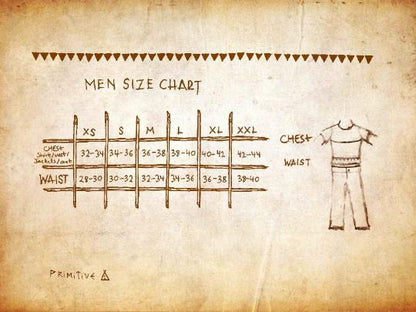 MEN SIZE CHART
XS S M L XL XXL
CHEST 32-34 34-36 36-38 38-40 40-42 42-44
WAIST 28-30 30-32 32-34 34-36 36-38 38-40
CHEST
WAIST
PRIMITIVE